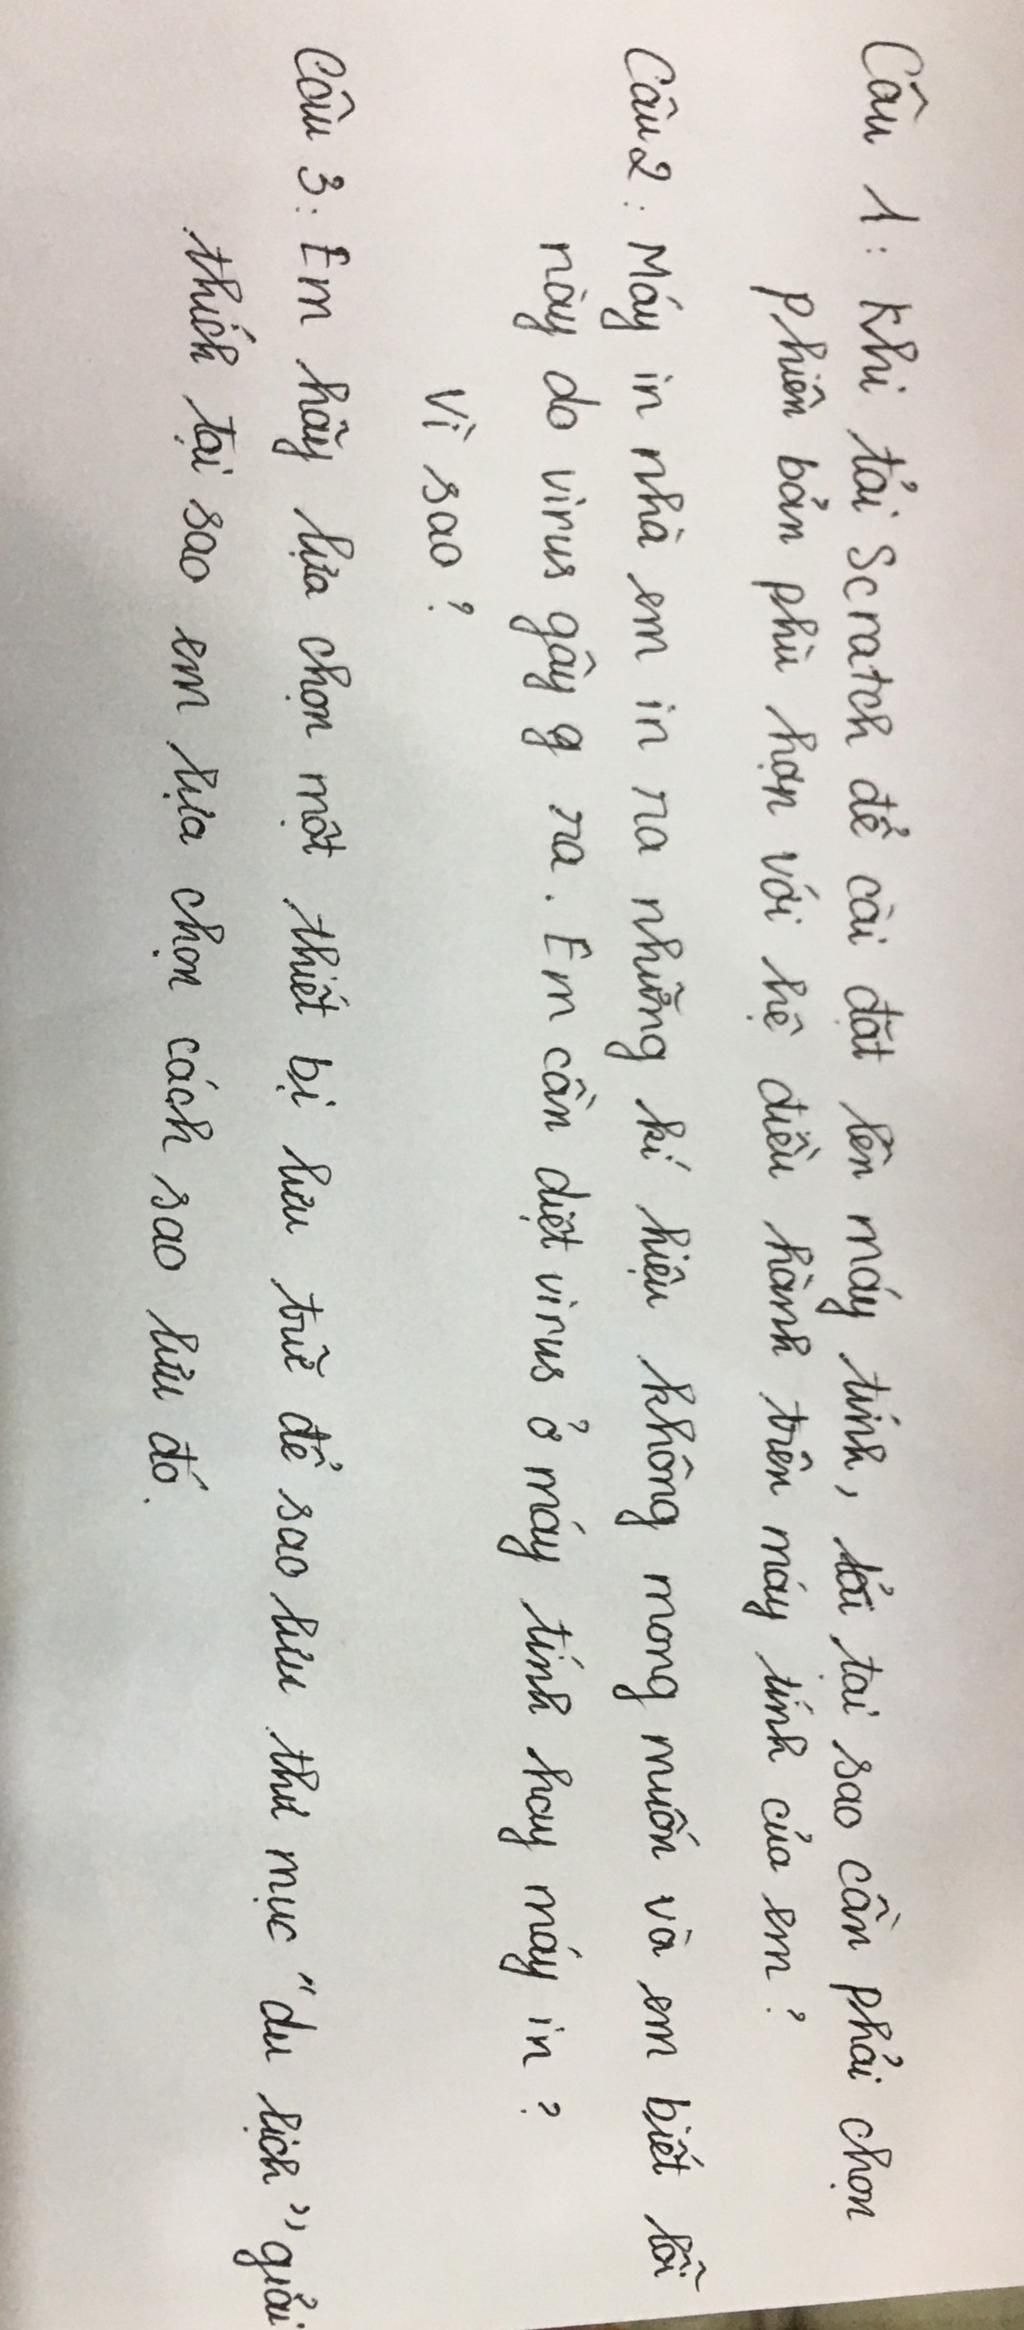 Câu 1: Khi tải Scratch để cài đặt lên máy tính, tại sao cần phải chọn
phiên bản phù hợp với hệ điều hành trên máy tính của em?
Câu 2: Máy in nhà em in ra những kí hiệu không mong muốn và em biết lỗi
này do virus gây ra. Em cần diệt virus ở máy tính hay máy in?
Vì sao?
Câu 3: Em hãy lựa chọn một thiết bị lưu trữ để sao lưu thư mục "du lịch" giải
thích tại sao em lựa chọn cách sao lưu đó.